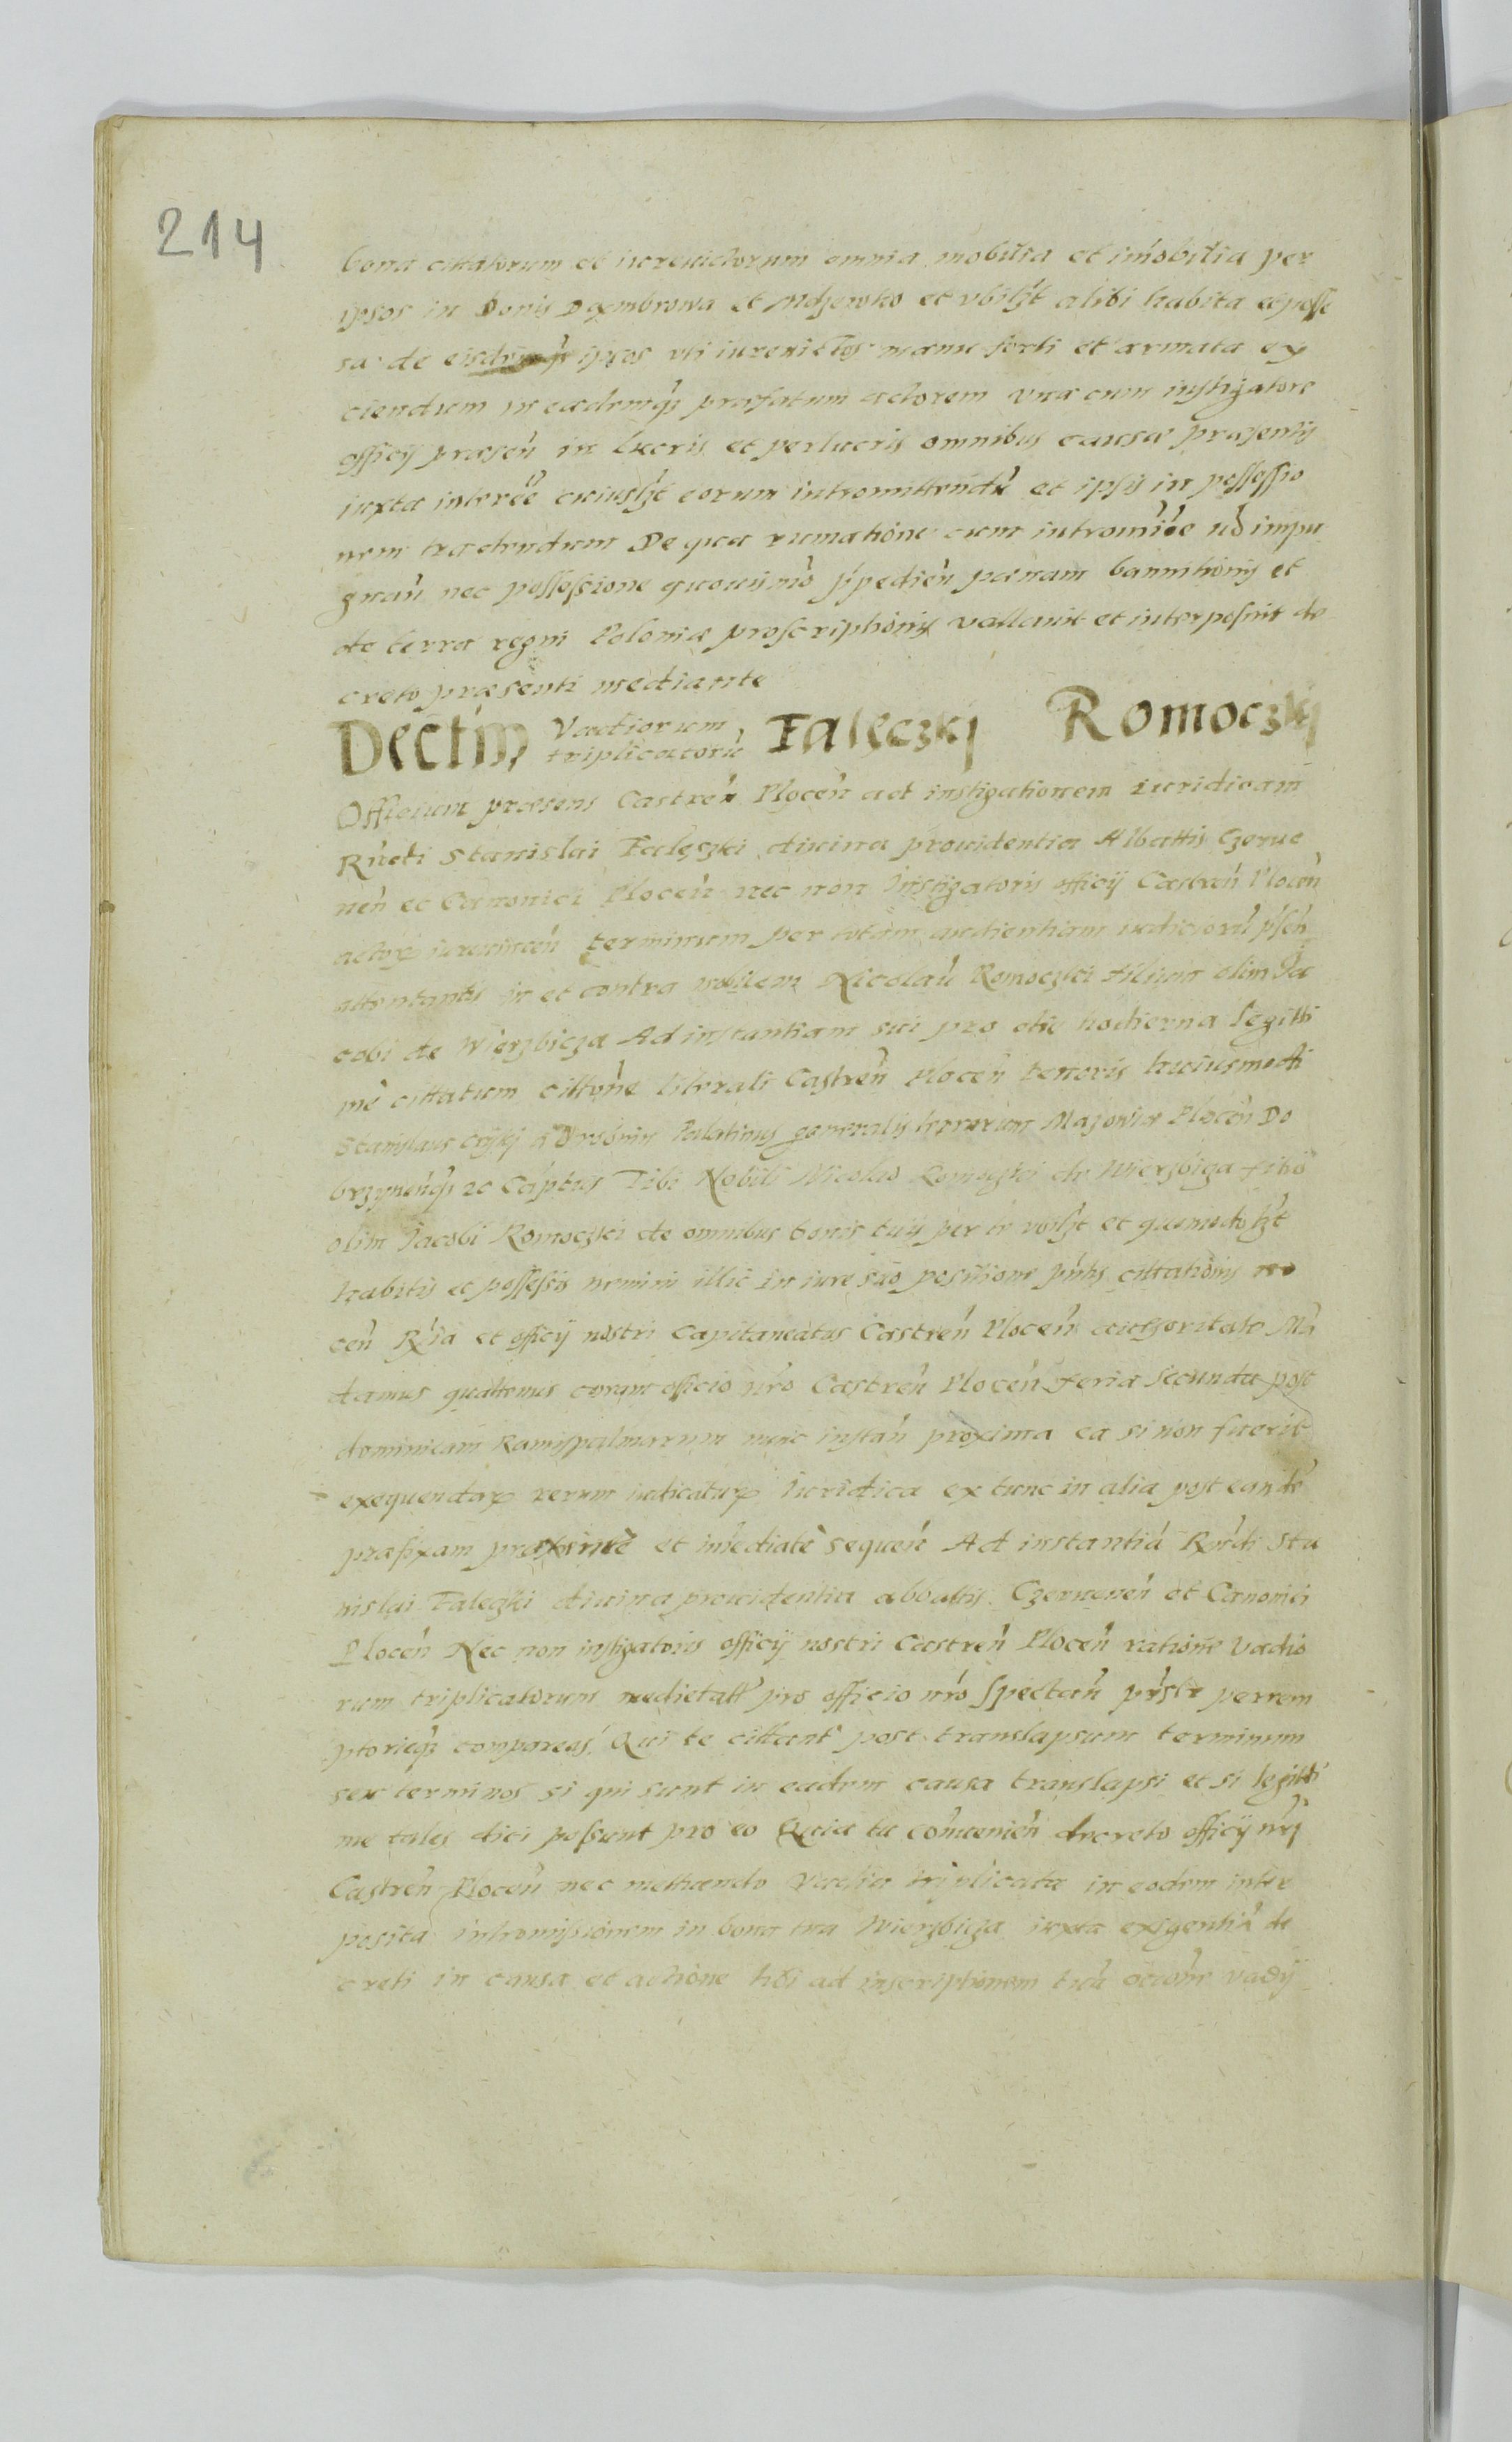 214
bona cittatorum et iurevictorum omnia mobilia et im̃obilia per
ipsos in bonis Dąmbrowa et Mdzewko et vbilzt alibi habita et posse
sa de eisdemq₃ ipsos vti iurevictos manu forti et armata ey
ciendum in eademq₃ præfatum actorem vna cum instigatore
officij præsen̄ in lucris et perlucris omnibus causæ præsentis
iuxta interēe cuiuslzt eorum intromittendū et ipsis in possessio
nem tradendum De qua rumatione cum intromiōe nō impu
gnan̄ nec possessione quouismō p̄pedien̄ pœnam bannitionis et
de terra regni Poloniæ proscriptionis vallauit et interposuit de
creto præsenti mediante
Dectm̄ Vadiorum triplicatorū Falęczkj Romoczkj
Officium præsens Castren̄ Plocen̄ ad instigationem iuridicam
Rn̄di Stanislai Falęczki diuina prouidentia Abbattis Czerue
nen̄ et Canonici Plocen̄ nec non Instigatoris officij Castren̄ Plocen̄
actorꝝ iureuincen̄ terminum per totam audientiam iudiciorū p̄sen̄
attentantis in et contra nobilem Nicolaū Romoczki filium olim Ja
cobi de Wierzbicza Ad instantiam sui pro die hodierna legitti
mè cittatum cittōne literali Castren̄ Plocen̄ tenoris huiusmodi
Stanislaus Palatinus generalis terrarum Mazoviæ Plocen̄ Do
brzynen̄q₃ ac Cap̄tus Tibi Nobili Nicolao Romoczki de Wierzbicza filio
olim Jacobi Romoczki de omnibus bonis tuis per te vbilzt et quomodolzt
habitis et possessis nemini illic in iure suo positione p̄ntis cittationis no
cen̄ R̄ia et officij nostri Capitaneatus Castren̄ Plocen̄ authoritate Mā
damus quattenus coram officio nr̄o Castren̄ Plocen̄ feria secunda post
dominicam Ramispalmarum nunc instan̄ proxima ea si non fuerit
exequendarꝝ rerum iudicatarꝝ Iuridica extunc in alia post eandē
præfixam proxime et im̄ediatè sequen̄ Ad instantiā Rn̄di Sta
nislai Falęczki diuina prouidentia abbattis Czeruenen̄ et Canonici
Plocen̄ Nec non instigatoris officij nostri Castren̄ Plocen̄ ratione vadio
rum triplicatorum medietatē pro officio nr̄o spectan̄ perrem
ptorieq₃ compareas Qui te cittant post translapsum terminum
sex terminos si qui sunt in eadem causa translapsi et si legitti
me tales dici possunt pro eo Quia tu conuenien̄ decreto officij nr̄j
Castren̄ Plocen̄ nec mettuendo vadia triplicata in eodem inter
posita intromissionem in bona tua Wierzbicza iuxta exigentiā de
creti in causa et actione tibi ad inscriptionem vadij